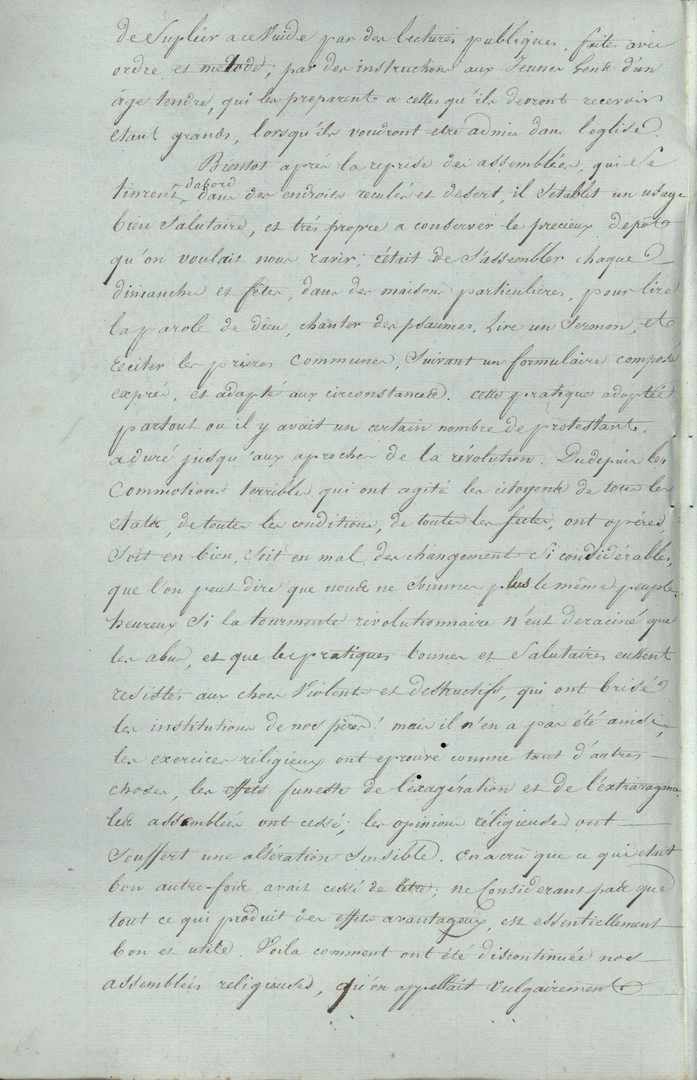 de Suplier a ce Vuide par des lectures publiques, faites avec
ordre et metode, par des instructions aux Jeunes Gens d'un
âge tendre, qui les preparent a celles qu'ils devront recevoir
etant grands, lorsqu'ils voudront etre admis dans l'eglise.
Bientot aprés la reprise des assemblées, qui se
tinrent d'abord dans des endroits reculés et desert, il S'etablit un usage
bien Salutaire, et trés propre a conserver le precieux depôt
qu'on voulait nous ravir; c'était de S'assembler chaque
dimanches et fêtes, dans des maisons particulieres, pour lire
la parole de dieu, chanter des psaumes, Lire un Sermon, et
reciter les prieres communes, Suivant un formulaire composé
exprés, et adapté aux circonstances. cette pratique adoptée
partout ou il y avait un certain nombre de protestants.
a duré jusqu'aux aproches de la révolution. Du depuis les
Commotions terribles qui ont agité les citoyens de tous les
etats, de toutes les conditions, de toutes les sectes, ont opérés
Soit en bien, Soit en mal, des changements Si considérables,
que l'on peut dire que nous ne Sommes plus le même peuple.
heureux Si la tourmente révolutionnaire n'eut deraciné que
les abus, et que les pratiques bonnes et Salutaires eussent
resistés aux chocs Violents et destructifs, qui ont brisé
les institutions de nos pères! mais il n'en a pas été ainsi,
les exercices réligieux ont eprouvé comme tant d'autres
choses, les effets funestes de l'exagération et de l'extravagance
les assemblées ont cessé; les opinions réligieuses ont
Souffert une altération Sensible. On a crû que ce qui etait
bon autre-fois avait cessé de l'être; ne Considerant pas que
tout ce qui produit des effets avantageux, est essentiellement
bon et utile. Voila comment ont été discontinuée nos
assemblées religieuses, qu'on appellait vulgairement